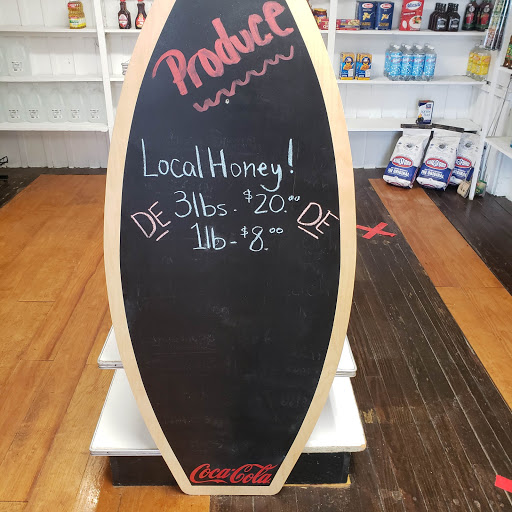 Produce
Local Honey!
DE 3lbs. $20.00 DE
1lb - $8.00
Coca-Cola